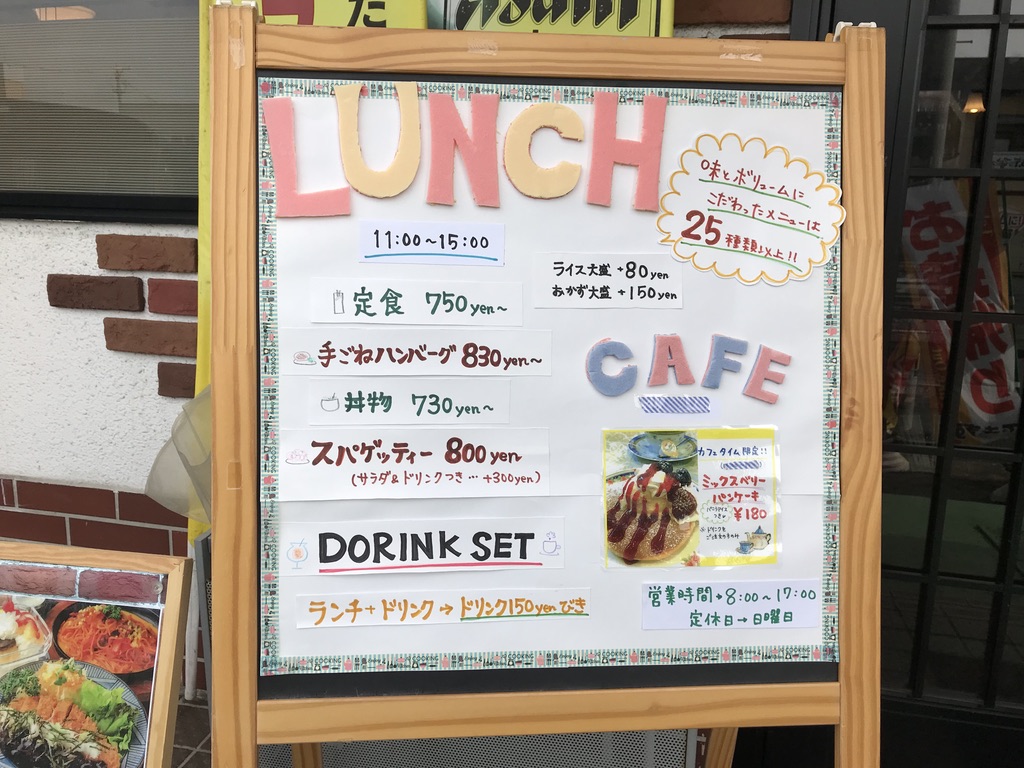 た
Asahi
LUNCH
味とボリュームに
こだわったメニューは
25種類以上!!
11:00~15:00
ライス大盛 +80yen
おかず大盛 +150yen
定食 750yen~
手ごねハンバーグ 830yen~
丼物 730yen~
スパゲッティー 800yen
(サラダ&ドリンクつき…+300yen)
CAFE
カフェタイム限定!!
ミックスベリー
パンケーキ
¥180
DORINK SET
ランチ+ドリンク→ドリンク150yenびき
営業時間→8:00~17:00
定休日→日曜日